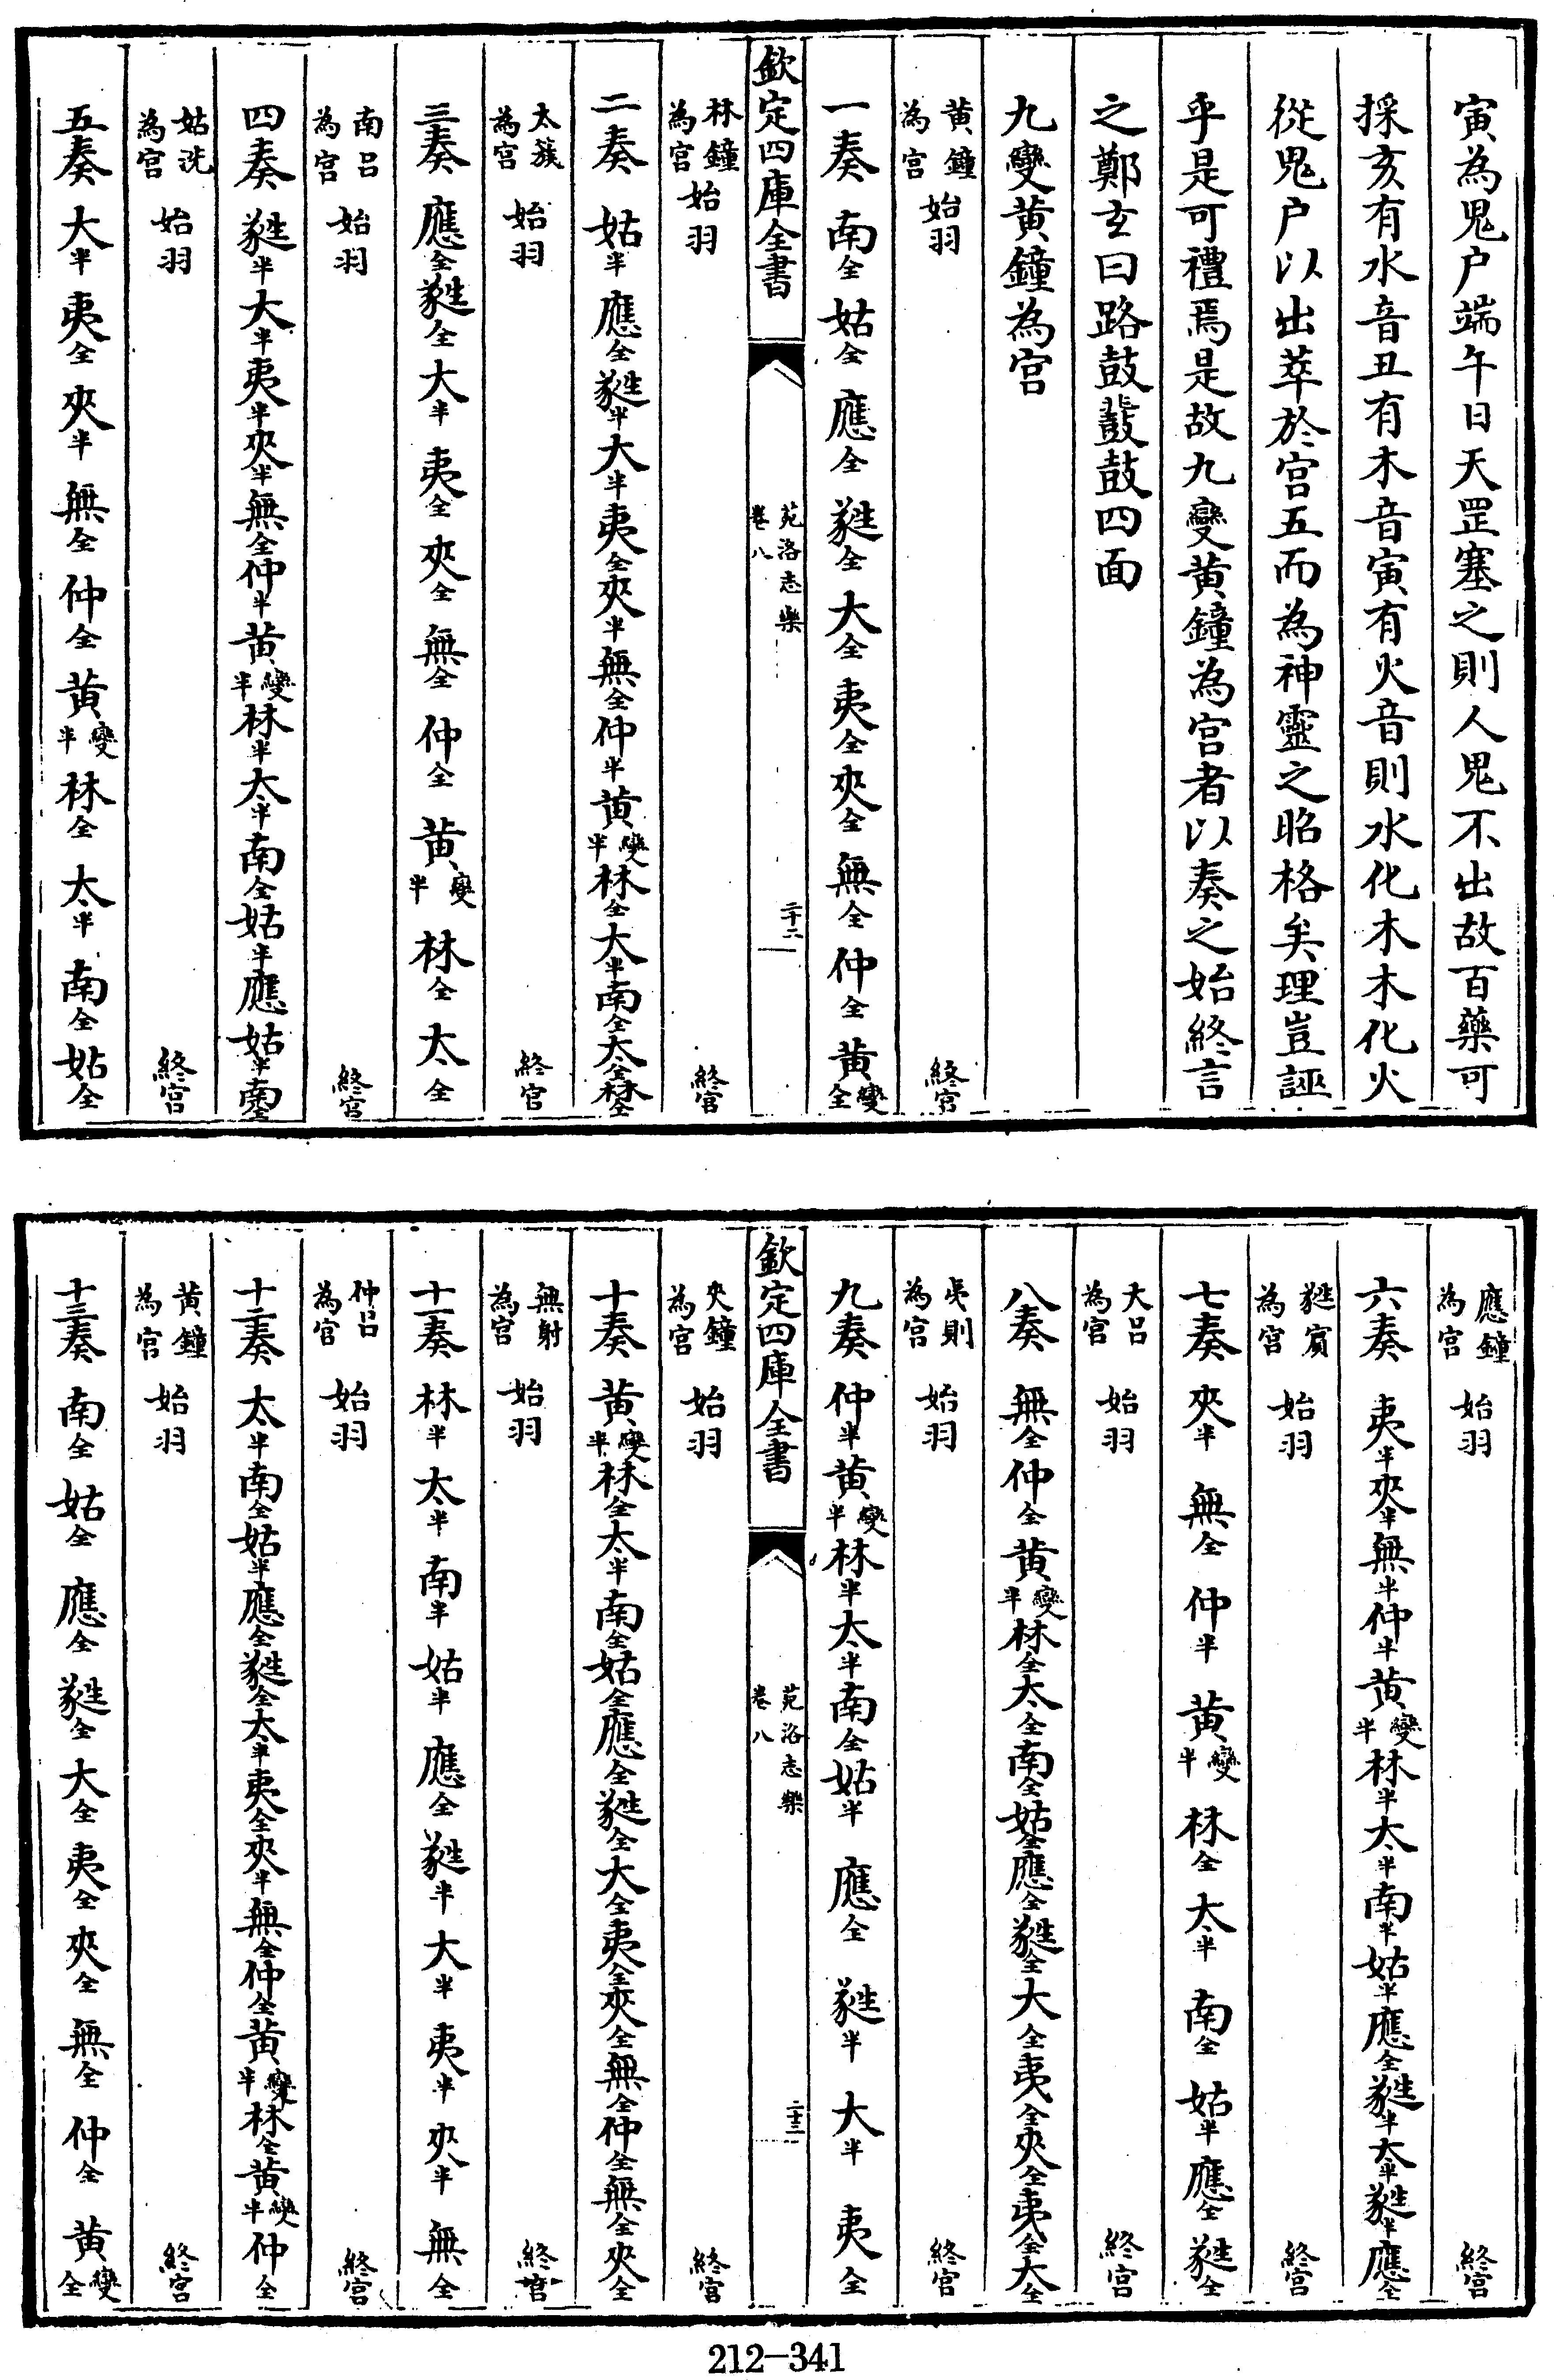 寅為鬼户端午日天罡塞之則人鬼不出故百藥可
採亥有水音丑有木音寅有火音則水化木木化火
從鬼户以出萃於宫五而為神靈之昭格矣理豈誣
乎是可禮焉是故九變黄鐘為宫者以奏之始終言
之鄭玄曰路鼓鼗鼓四面
九變黄鐘為宫
黄鐘為宫 始羽 終宫
一奏 南全 姑全 應全 蕤全 大全 夷全 夾全 無全 仲全 黄變全
欽定四庫全書 苑洛志樂 卷八 二十二
林鐘為宫 始羽 終宫
二奏 姑半 應全 蕤半 大半 夷全 夾半 無全 仲半 黄變半 林全 太半 南全 太全 林全
太簇為宫 始羽 終宫
三奏 應全 蕤全 大半 夷全 夾全 無全 仲全 黄變半 林全 太全
南吕為宫 始羽 終宫
四奏 蕤半 大半 夷半 夾半 無全 仲半 黄變半 林半 太半 南全 姑半 應 姑半 南全
姑洗為宫 始羽 終宫
五奏 大半 夷全 夾半 無全 仲全 黄變半 林全 太半 南全 姑全
應鐘為宫 始羽 終宫
六奏 夷半 夾半 無半 仲半 黄變半 林半 太半 南半 姑半 應全 蕤半 大半 蕤半 應全
蕤賓為宫 始羽 終宫
七奏 夾半 無全 仲半 黄變半 林全 太半 南全 姑半 應全 蕤全
大吕為宫 始羽 終宫
八奏 無全 仲全 黄變半 林全 太全 南全 姑全 應全 蕤全 大全 夷全 夾全 夷全 大全
夷則為宫 始羽 終宫
九奏 仲半 黄變半 林半 太半 南全 姑半 應全 蕤半 大半 夷全
欽定四庫全書 苑洛志樂 卷八 二十三
夾鐘為宫 始羽 終宫
十奏 黄變半 林全 太半 南全 姑全 應全 蕤全 大全 夷全 夾全 無全 仲全 無全 夾全
無射為宫 始羽 終宫
十一奏 林半 太半 南半 姑半 應全 蕤半 大半 夷半 夾半 無全
仲吕為宫 始羽 終宫
十二奏 太半 南全 姑半 應全 蕤全 太半 夷全 夾半 無全 仲全 黄變半 林全 黄變半 仲全
黄鐘為宫 始羽 終宫
十三奏 南全 姑全 應全 蕤全 大全 夷全 夾全 無全 仲全 黄變全
212-341